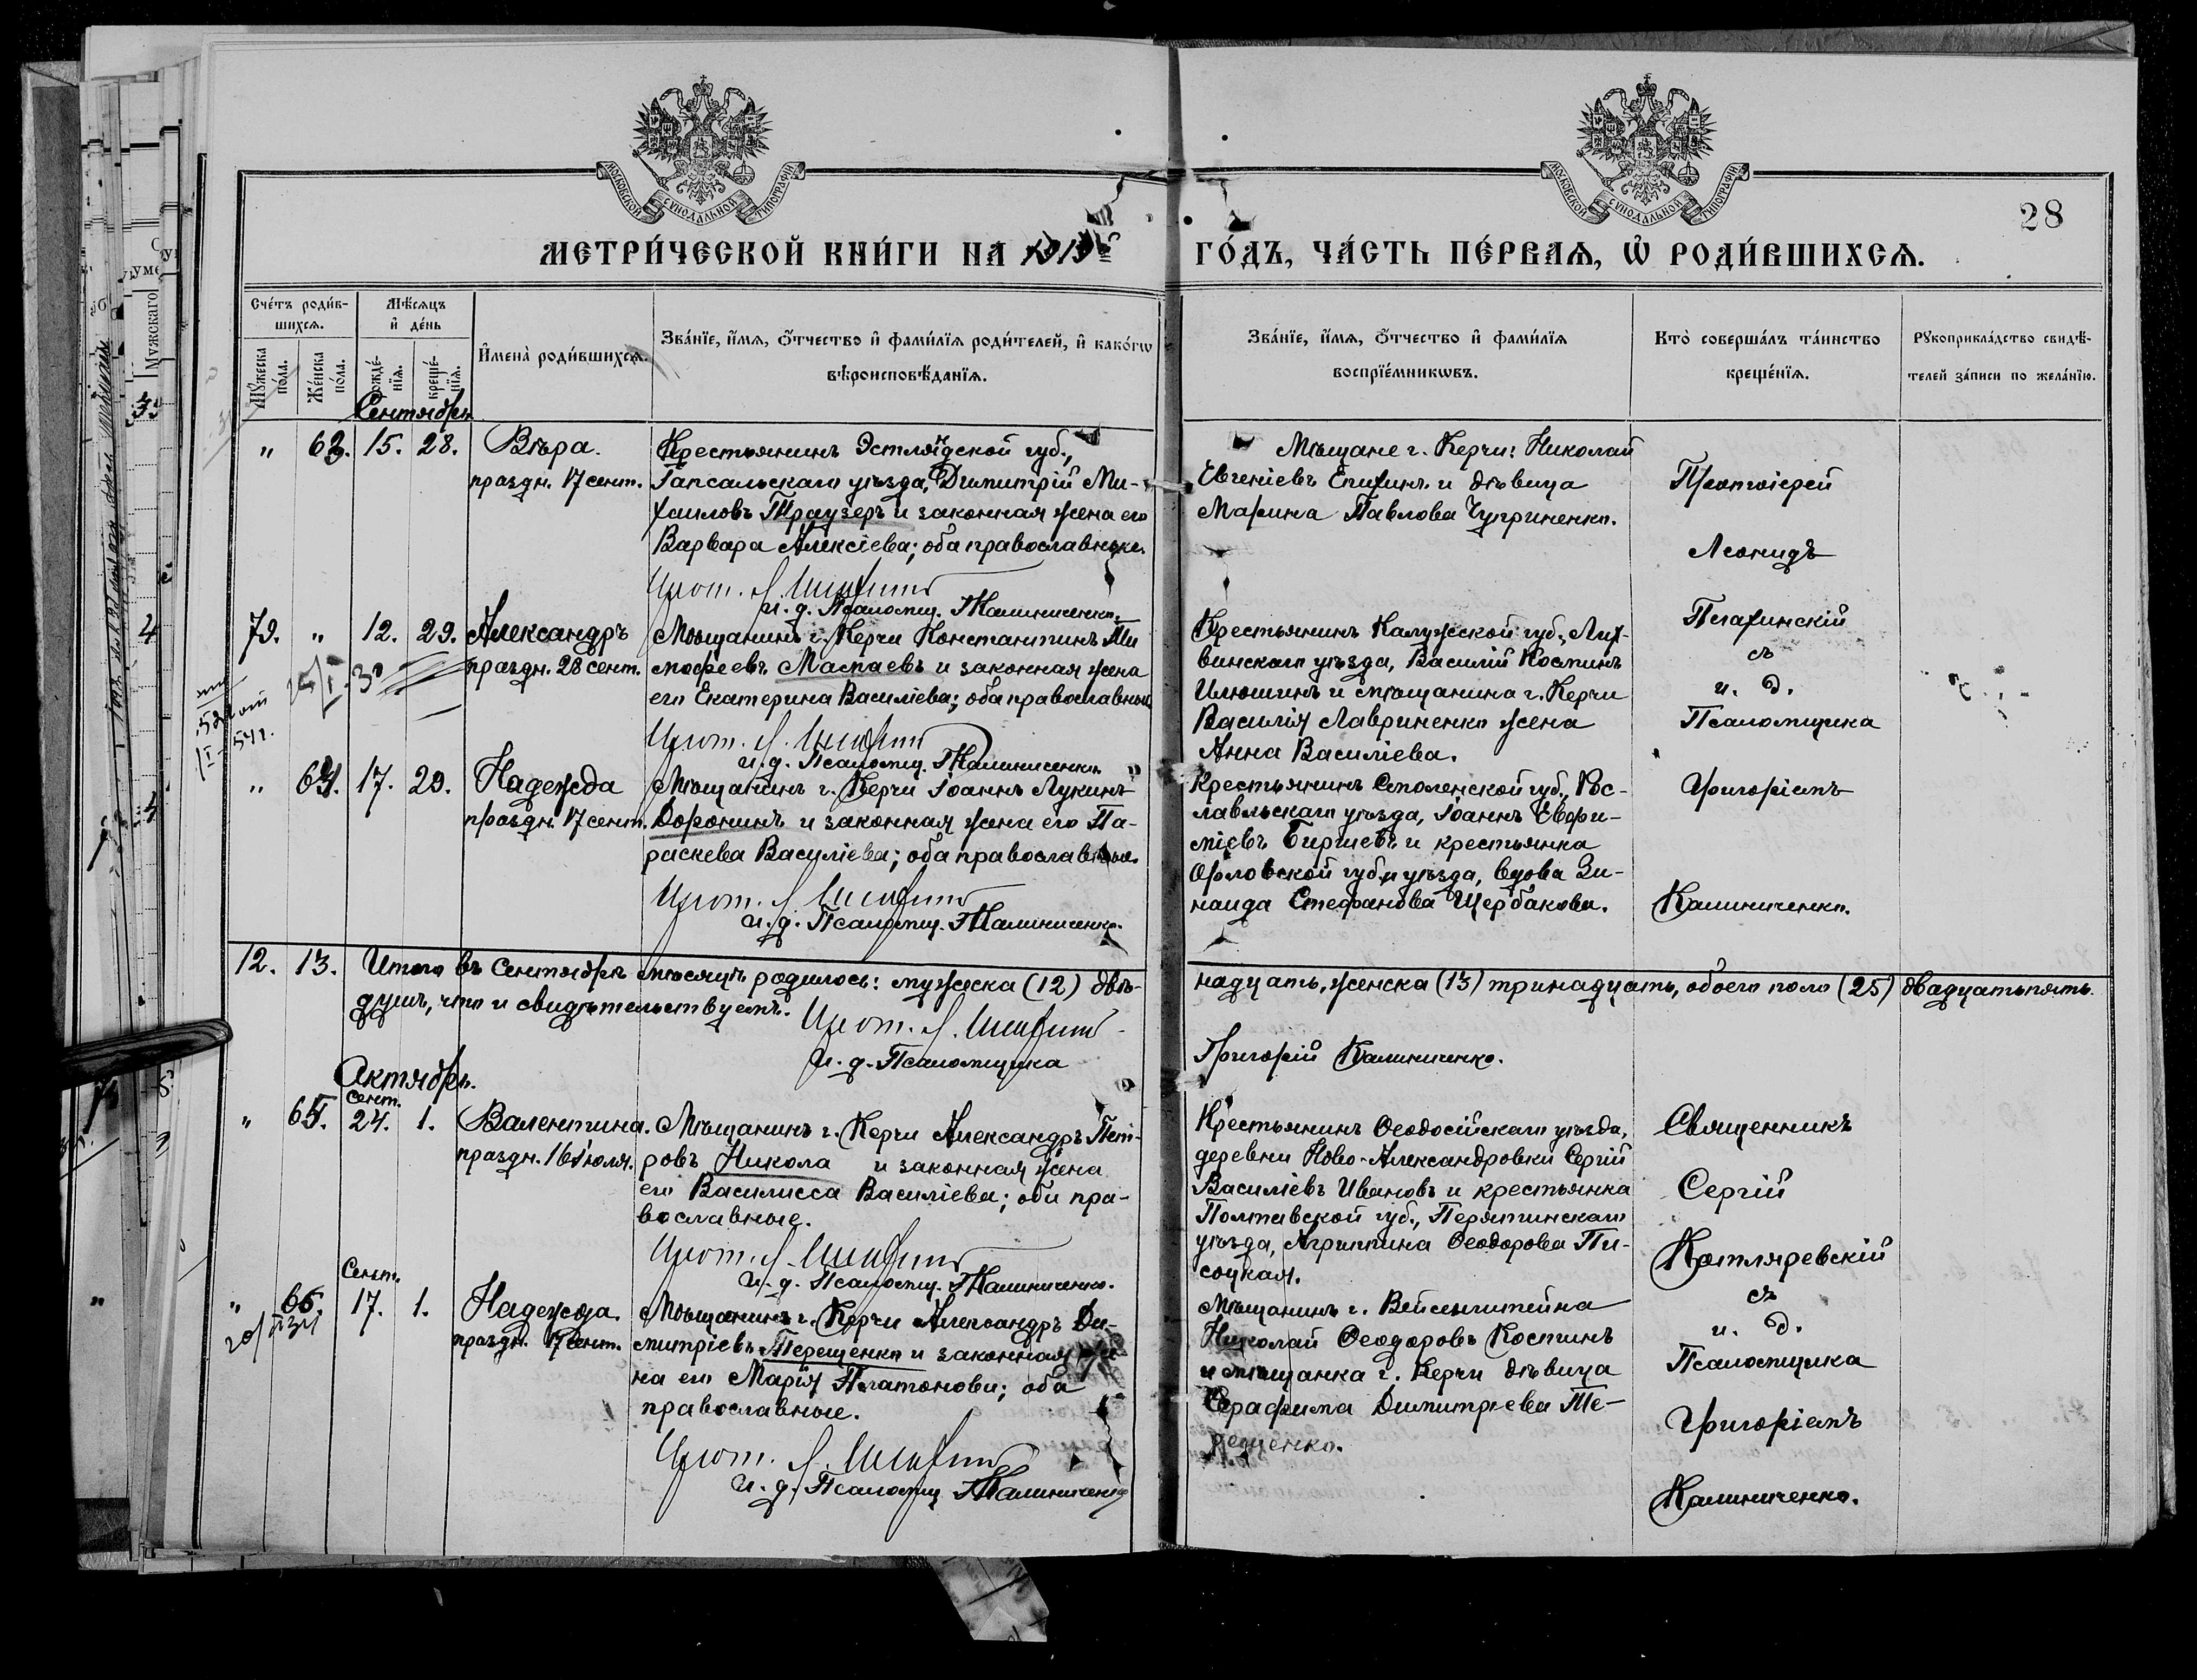 МОСКОВСКОЙ СѴНОДАЛЬНОЙ ТИПОГРАФІИ
МОСКОВСКОЙ СѴНОДАЛЬНОЙ ТИПОГРАФІИ
28
МЕТРИ́ЧЕСКОЙ КНИ́ГИ НА
ГО́ДЪ, ЧА́СТЬ ПЕ́РВАѦ, Ѡ҆ РОДИ́ВШИХСѦ.
Сче́тъ роди́в-
шихсѧ.
Мѣ́сяцъ
и҆ де́нь
Мꙋ́жеска по́ла.
Же́нска по́ла.
рожде́-
нїѧ.
креще́-
нїѧ.
И҆мена̀ роди́вшихсѧ.
Зва́нїе, и҆́мѧ, ѻ҆́тчество и҆ фами́лїѧ роди́телей, и҆ како́гѡ
вѣроисповѣ́данїѧ.
Зва́нїе, и҆́мѧ, ѻ҆́тчество и҆ фами́лїѧ
воспрїе́мникѡвъ.
Кто̀ соверша́лъ та́инство
креще́нїѧ.
Рꙋкоприкла́дство свидѣ́-
телей за́писи по жела́нїю.
Сентябрь
" 63. 15. 28. Вѣра.
праздн. 17 сент.
Крестьянинъ Эстляндской губ.,
Гапсальскаго уѣзда, Димитрій Ми-
хаиловъ Траузеръ и законная жена его
Варвара Алексіева; оба православные.
Прот.
и. д. Псаломщ. Г Калиниченко.
Мѣщане г. Керчи: Николай
Евгеніевъ Епихинъ и дѣвица
Марина Павлова Чуприненко.
Протоіерей
Леонидъ
79. " 12. 29. Александръ
праздн. 28 сент.
Мѣщанинъ г. Керчи Константинъ Ти
мофеевъ Маспаевъ и законная жена
его Екатерина Василіева; оба православные
Прот.
и. д. Псаломщ. Г Калиниченко.
Крестьянинъ Калужской губ., Лих-
винскаго уѣзда, Василій Костинъ
Илюшинъ и мѣщанина г. Керчи
Василія Лавриненко жена
Анна Василіева.
съ
и. д.
Псаломщика
" 64. 17. 29. Надежда
праздн. 17 сент.
Мѣщанинъ г. Керчи Іоаннъ Лукинъ
Доронинъ и законная жена его Па-
раскева Василіева; оба православные.
Прот.
и. д. Псаломщ. Г Калиниченко.
Крестьянинъ Смоленской губ., Рос-
лавльскаго уѣзда, Іоаннъ Евфи-
міевъ и крестьянка
Орловской губ. и уѣзда, вдова Зи-
наида Стефанова Щербакова.
Григоріемъ
Калиниченко.
12. 13. Итого въ Сентябрѣ мѣсяцѣ родилось: мужеска (12) двѣ-
надцать, женска (13) тринадцать, обоего пола (25) двадцать пять
душъ, что и свидѣтельствуемъ. Прот.
И. д. Псаломщика
Григорій Калиниченко.
Октябрь.
сент.
" 65. 24. 1. Валентина.
праздн. 16 іюля.
Мѣщанинъ г. Керчи Александръ Пет-
ровъ Никола и законная жена
его Василисса Василіева; оба пра-
вославные.
Прот.
и. д. Псаломщ. Г Калиниченко.
Крестьянинъ Ѳеодосійскаго уѣзда,
деревни Ново-Александровки Сергій
Василіевъ Ивановъ и крестьянка
Полтавской губ., Пирятинскаго
уѣзда, Агриппина Ѳеодорова Пи-
соцкая.
Священникъ
Сергій
Котляревскій
Сент.
" 66. 17. 1. Надежда.
праздн. 17 сент.
Мѣщанинъ г. Керчи Александръ Ди-
митріевъ Терещенко и законная же
на его Марія Платонова; оба
православные.
Прот.
и. д. Псаломщ. Г Калиниченко
Мѣщанинъ г. Вейсенштейна
Николай Ѳеодоровъ Костинъ
и мѣщанка г. Керчи дѣвица
Серафима Димитріева Те-
рещенко.
съ
и. д.
Псаломщика
Григоріемъ
Калиниченко.